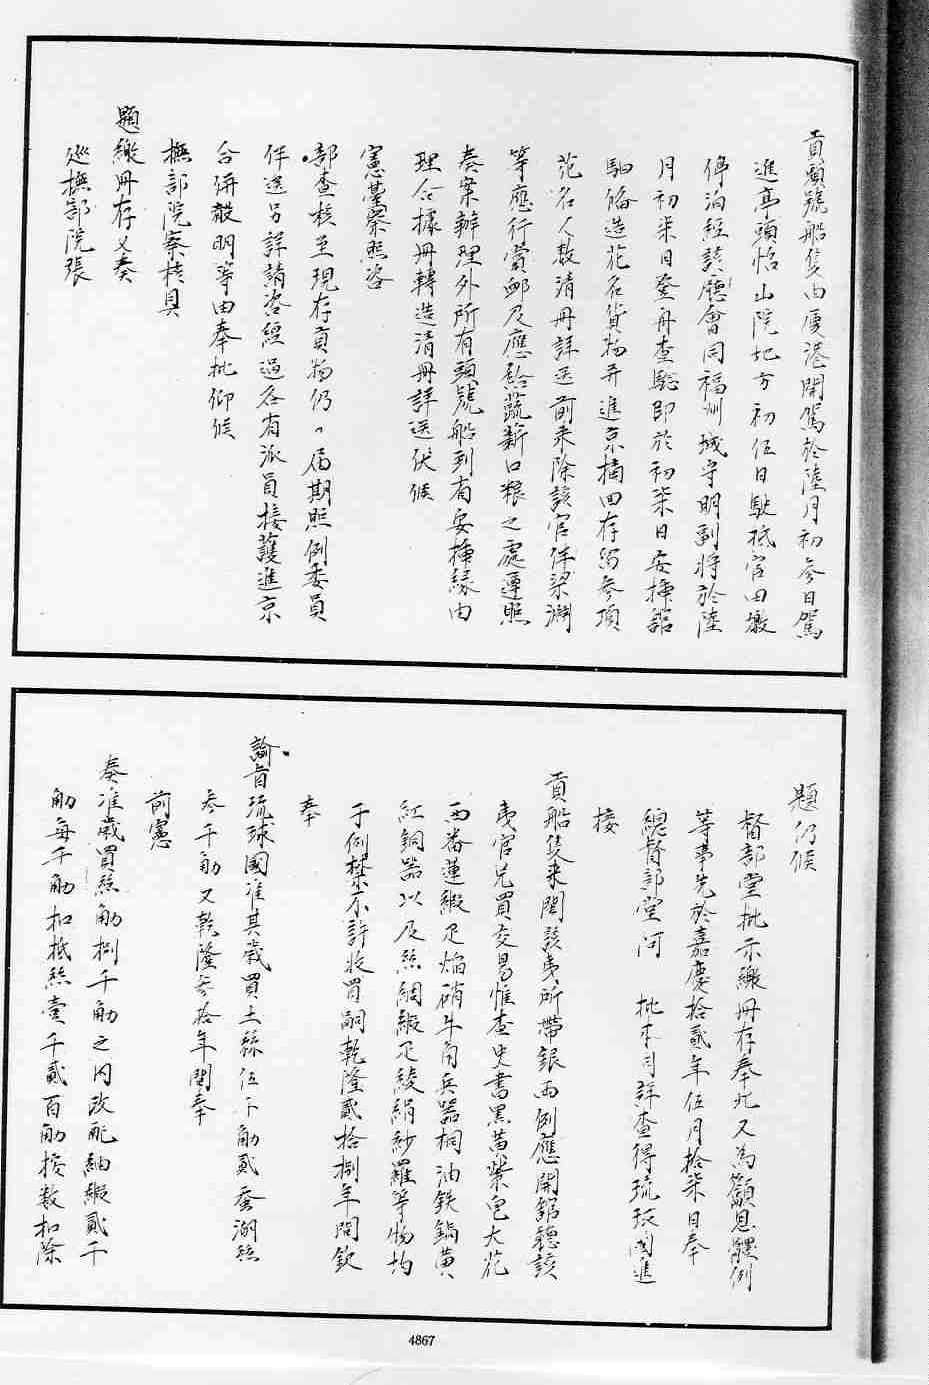 貢頭號船隻由廈港開駕於陸月初參日駕
進亭頭怡山院地方初伍日駛抵官田墩
停泊經該廳會同福州城守明副將於陸
月初柒日登舟查驗即於初柒日安揷館
驛飭造花名貨物并進京摘回存留參項
花名人數清冊詳送前來除該官伴梁淵
等應行賞卹及應給蔬薪口粮之處遵照
奏案辦理外所有頭號船到有安揷緣由
理合據冊轉造清冊詳送伏候
憲臺察照咨
部查核至現存貢物仍屆期照例委員
伴送另詳請咨經過各省派員接護進京
合併聲明等由奉批仰候
撫部院察核具
題繳冊存又奏
巡撫部院張
題仍候
督部堂批示繳冊存奉此又為籲恩體例
等事先於嘉慶拾貳年伍月拾柒日奉
總督部堂阿 批本司詳查得琉球國進
接
貢船隻來閩該夷所帶銀兩例應開館聽該
夷官兌買交易惟查史書黑黃柴皂大花
西番蓮緞疋焰硝牛角兵器桐油鉄鍋黃
紅銅器以及絲綢緞疋綾絹紗羅等物均
于例禁不許收買嗣乾隆貳拾捌年間欽
奉
諭旨琉球國准其歲買土絲伍千觔貳蚕湖絲
參千觔又乾隆參拾年間奉
前憲
奏准歲買絲觔捌千觔之內改配紬緞貳千
觔每千觔扣抵絲壹千貳百觔按数扣除
4867